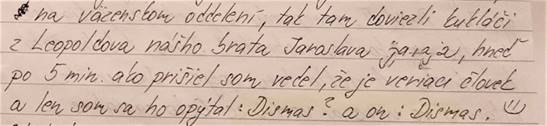 na väzenskom oddelení, tak tam doviezli kukláči
z Leopoldova nášho brata Jaroslava hneď
po 5 min. ako prišiel som vedel, že je veriaci človek
a len som sa ho opýtal: Dismas? a on: Dismas.